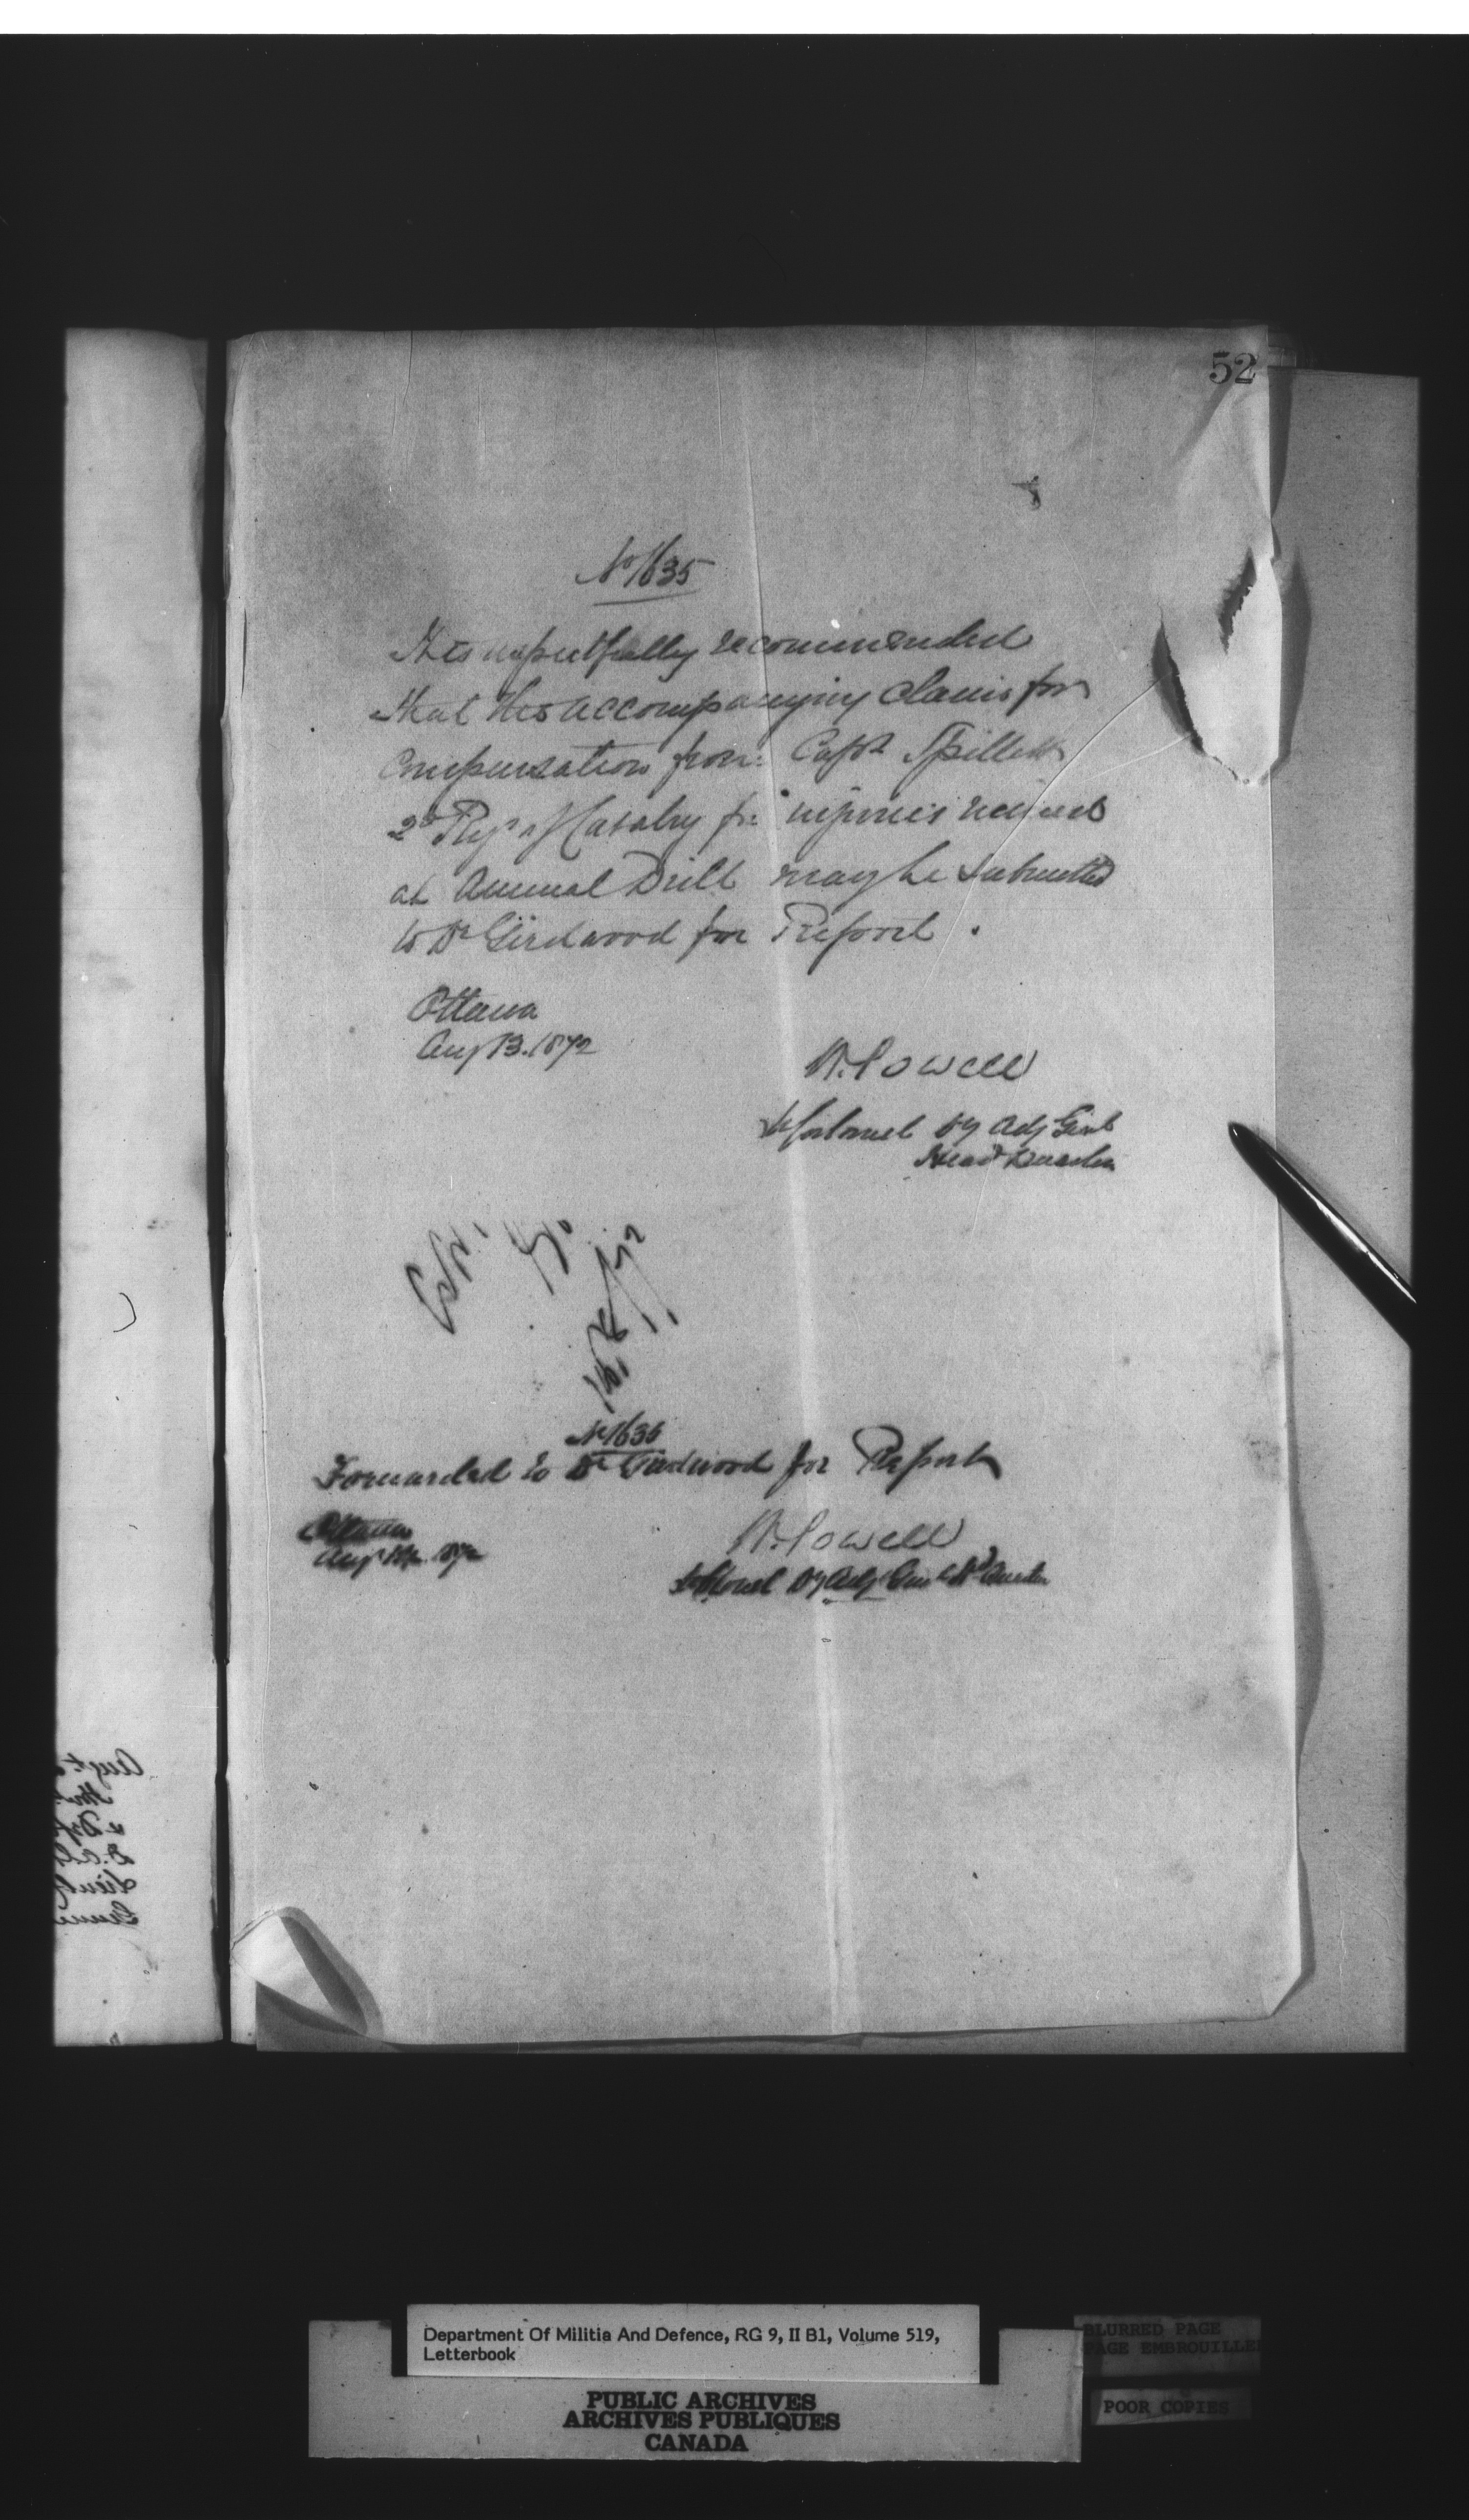 52
No 1635
It is respectfully recommended
that the accompanying claim for
Compensation from Capt Spillett
2d Regt Cavalry for injuries received
at Annual Drill may be submitted
to Dr Girdwood for Report.
Ottawa
Aug 13. 1872
W. Powell
Lt Colonel Dy Adj Genl
Head Quarters
No 1635
Forwarded to Dr Girdwood for Report
Ottawa
W. Powell
Lt Colonel Dy Adj Genl Hd Quarters
Department Of Militia And Defence, RG 9, II B1, Volume 519,
Letterbook
PUBLIC ARCHIVES
ARCHIVES PUBLIQUES
CANADA
BLURRED PAGE
PAGE EMBROUILLE
POOR COPIES